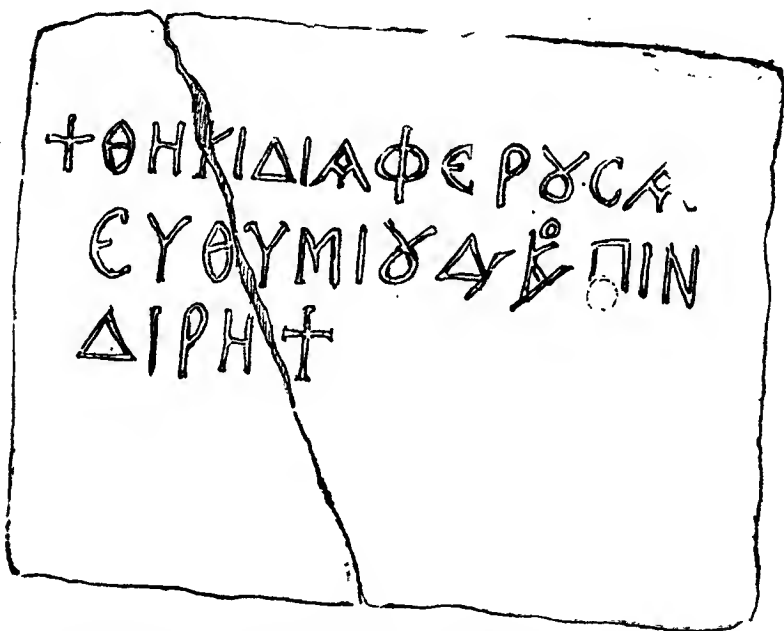 +ΘΗΚΙΔΙΑΦΕΡȢCΑ
ΕΥΘΥΜΙȢ ΠΙΝ
ΔΙΡΗ+